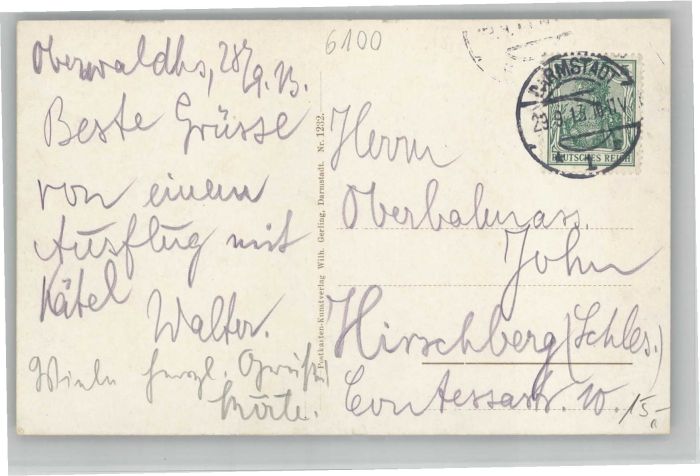 6100
Oberwaldhs, 28/9.13.
Beste Grüsse
von einem
Ausflug mit
Kätel
Walter.
Viele herzl. Grüße
Käte.
Postkarten-Kunstverlag Wilh. Gerling, Darmstadt. Nr. 1232.
DARMSTADT
29.9.13
1
DEUTSCHES REICH
Herrn
Oberbahnass.
John
Hirschberg (Schles.)
Contessastr. 10.
15-